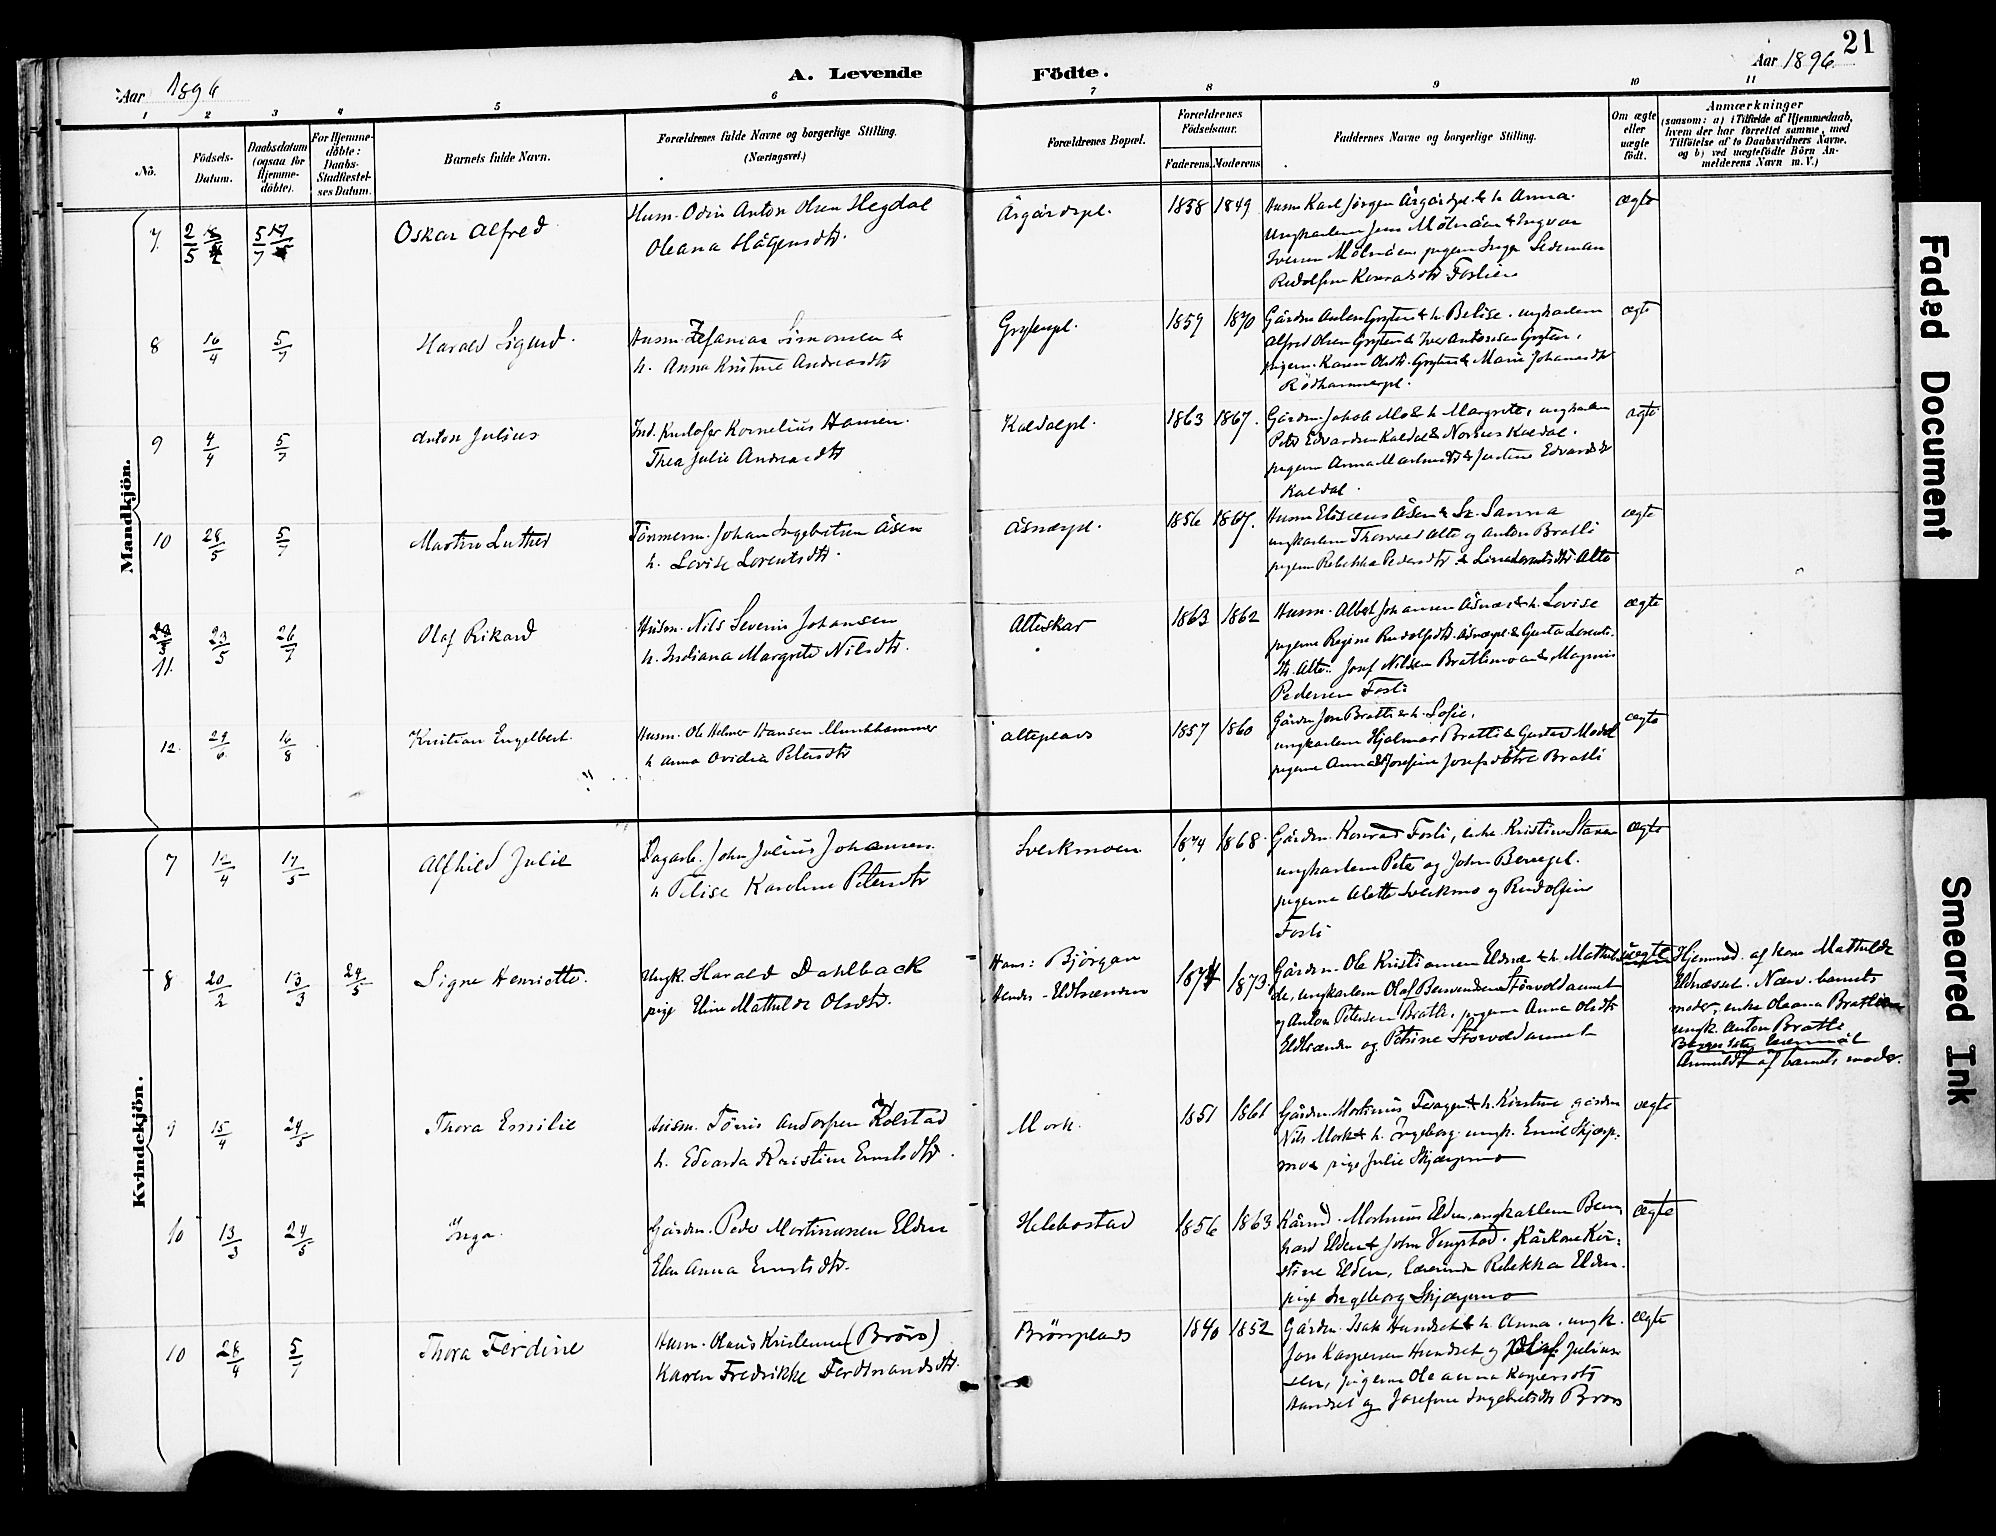 21
Aar 1896
A. Levende Födte.
Aar 1896
1 2 3 4 5 6 7 8 9 10 11
No.
Födsels-Datum.
Daabsdatum (ogsaa for Hjemme-döbte).
For Hjemme-döbte: Daabs-Stadfæstel-ses Datum.
Barnets fulde Navn.
Forældrenes fulde Navne og borgerlige Stilling. (Næringsvei.)
Forældrenes Bopæl.
Forældrenes Födselsaar.
Faderens. Moderens.
Faddernes Navne og borgerlige Stilling.
Om ægte eller uægte födt.
Anmærkninger
(saasom: a) i Tilfælde af Hjemmedaab, hvem der har forrettet samme, med Tilföielse af to Daabsvidners Navne, og b) ved uægtefödte Börn An-melderens Navn m. V.)
Mandkjön.
7 2/5 5/7 Oskar Alfred
Husm. Odin Anton Olsen Hegdal
Oleana Hågensdtr.
Årgårdspl. 1858 1849
Husm Karl Jörgen Årgårdspl. & h. Anna.
Ungkarlene Jens Mölnåen & Ingvar
Iversen Mölnåen pigerne Inga Sedeman
Rudolfine Konradsdtr Foslien
ægte
8 16/4 5/7 Harald Sigurd.
Husm. Zefanias Simonsen &
h. Anna Kristine Andreasdtr
Grytenpl. 1859 1870
Gårdm Anton Gryten & h. Belise. ungkarlene
Alfred Olsen Gryten & Iver Antonsen Gryten,
pigerne Karen Olsdtr. Gryten & Marie Johansdtr
Rödhammerpl.
ægte
9 4/4 5/7 Anton Julius
Ind. Kristofer Kornelius Hansen.
Thea Julie Andreasdtr
Kaldalpl. 1863 1867.
Gårdm. Jakob Mo & h. Margrete, ungkarlene
Peter Edvardsen Kaldal & Norius Kaldal.
pigerne Anna Martinsdtr & Justine Edvardsdtr
Kaldal.
ægte
10 28/5 5/7 Martin Luther
Tömmerm. Johan Ingebrigtsen Åsen
h. Lovise Lorentsdtr.
Åsnæspl. 1856 1867.
Husm Eliseus Åsen & h. Sanna
ungkarlene Thorvald Alte og Anton Bratli
pigerne Rebekka Pedersdtr & Lina Lorentsdtr Alte
ægte
11. 23/5 26/7 Olaf Rikard
Husm. Nils Severin Johansen
h. Indiana Margrete Nilsdtr.
Alteskar 1863 1862
Husm. Albert Johansen Åsnæs & h. Lovise
pigerne Regine Rudolfsdtr. Åsnæspl. & Gusta Lorents-
dtr. Alte. Josef Nilsen Bratlimoan & Magnus
Pedersen Fosli
ægte
12. 29/6 16/8 Kristian Engelbert
Husm. Ole Helmer Hansen Munkhammer
h Anna Ovidia Petersdtr
Alteplads 1857 1860
Gårdm Jon Bratli & h. Sofie.
ungkarlene Hjalmar Bratli & Gustav Modal
pigerne Anna & Josefine Josefsdötre Bratli
ægte
Kvindekjön.
7 12/4 17/5 Alfhild Julie
Dagarb. John Julius Johansen
h Pelise Karoline Petersdtr
Sverkmoen 1874 1868.
Gårdm. Konrad Fosli, enke Kristine Stavn
ungkarlene Peter og John Bergspl.
pigerne Alette Sverkmo og Rudolfine
Fosli
ægte
8 20/2 13/3 24/5 Signe Henriette.
Ungk. Harald Dahlback
pige Eline Mathilde Olsdtr.
Hans: Björgan
Hendes - Eldtrænden
1874 1873
Gårdm. Ole Kristiansen Eldnæs & h. Mathil-
de, ungkarlene Olaf Berntsen Störvoldaunet
og Anton Petersen Bratli, pigerne Anna Olsdtr
Eldtrænden og Petrine Störvoldaunet
uægte
Hjemmed. af kone Mathilde
Eldnæsset. Nærv. barnets
moder, enke Oleana Bratli
ungk. Anton Bratli
Anmeldt af barnets moder.
9 15/4 24/5 Thora Emilie
Husm. Tönnis Andersen Kolstad
h. Edvarda Kristine Ernstsdtr.
Mork. 1851 1861
Gårdm. Mortinius Tvagen & h. Kirstine, gårdm
Nils Mork & h. Ingeborg. ungk. Emil Skjærp-
mo & pige Julie Skjærpmo
ægte
10 13/3 24/5 Inga.
Gårdm. Peder Martinussen Elden
Elen Anna Ernstsdtr.
Helebostad 1856 1863
Kårmd. Mortinus Elden, ungkarlene Bern-
hard Elden & John Vengstad. Kårkone Kir-
stine Elden, lærerinde Rebekka Elden.
pige Ingeborg Skjærpmo
ægte
10 28/4 5/7 Thora Ferdine
Husm. Olaus Kristensen (Brörs)
Karen Fredrikke Ferdinandsdtr.
Brörsplads 1840 1852
Gårdm. Isak Hundset & h. Anna. ungk.
Jon Kaspersen Hundset og Olaf Julius-
sen, pigerne Oleanna Kaspersdtr
Hundset og Josefine Ingebrigtsdtr Brörs
ægte
Faded Document
Smeared Ink